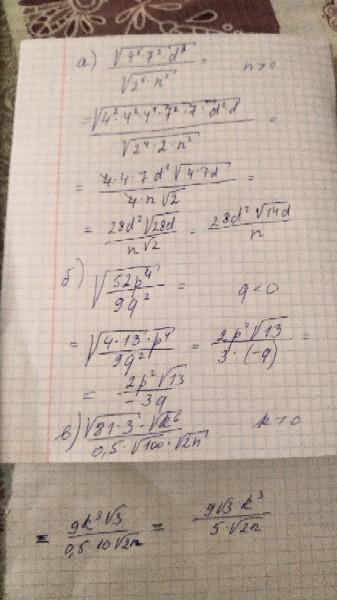 а) √(4⁵·7³·d⁵) / √(2⁵·n²) = n>0
= √(4²·4²·4·7²·7·d⁴·d) / √(2⁴·2·n²) =
= 4·4·7d²√(4·7d) / 4·n√2 =
= 28d²√28d / n√2 = 28d²√14d / n
б) √(52p⁴ / 9q²) = q<0
= √(4·13·p⁴ / 9q²) = 2p²√13 / 3·(-q) =
= 2p²√13 / -3q
в) √81·3·√k⁶ / 0,5·√100·√2n k>0
= 9k³√3 / 0,5·10√2n = 9√3·k³ / 5·√2n